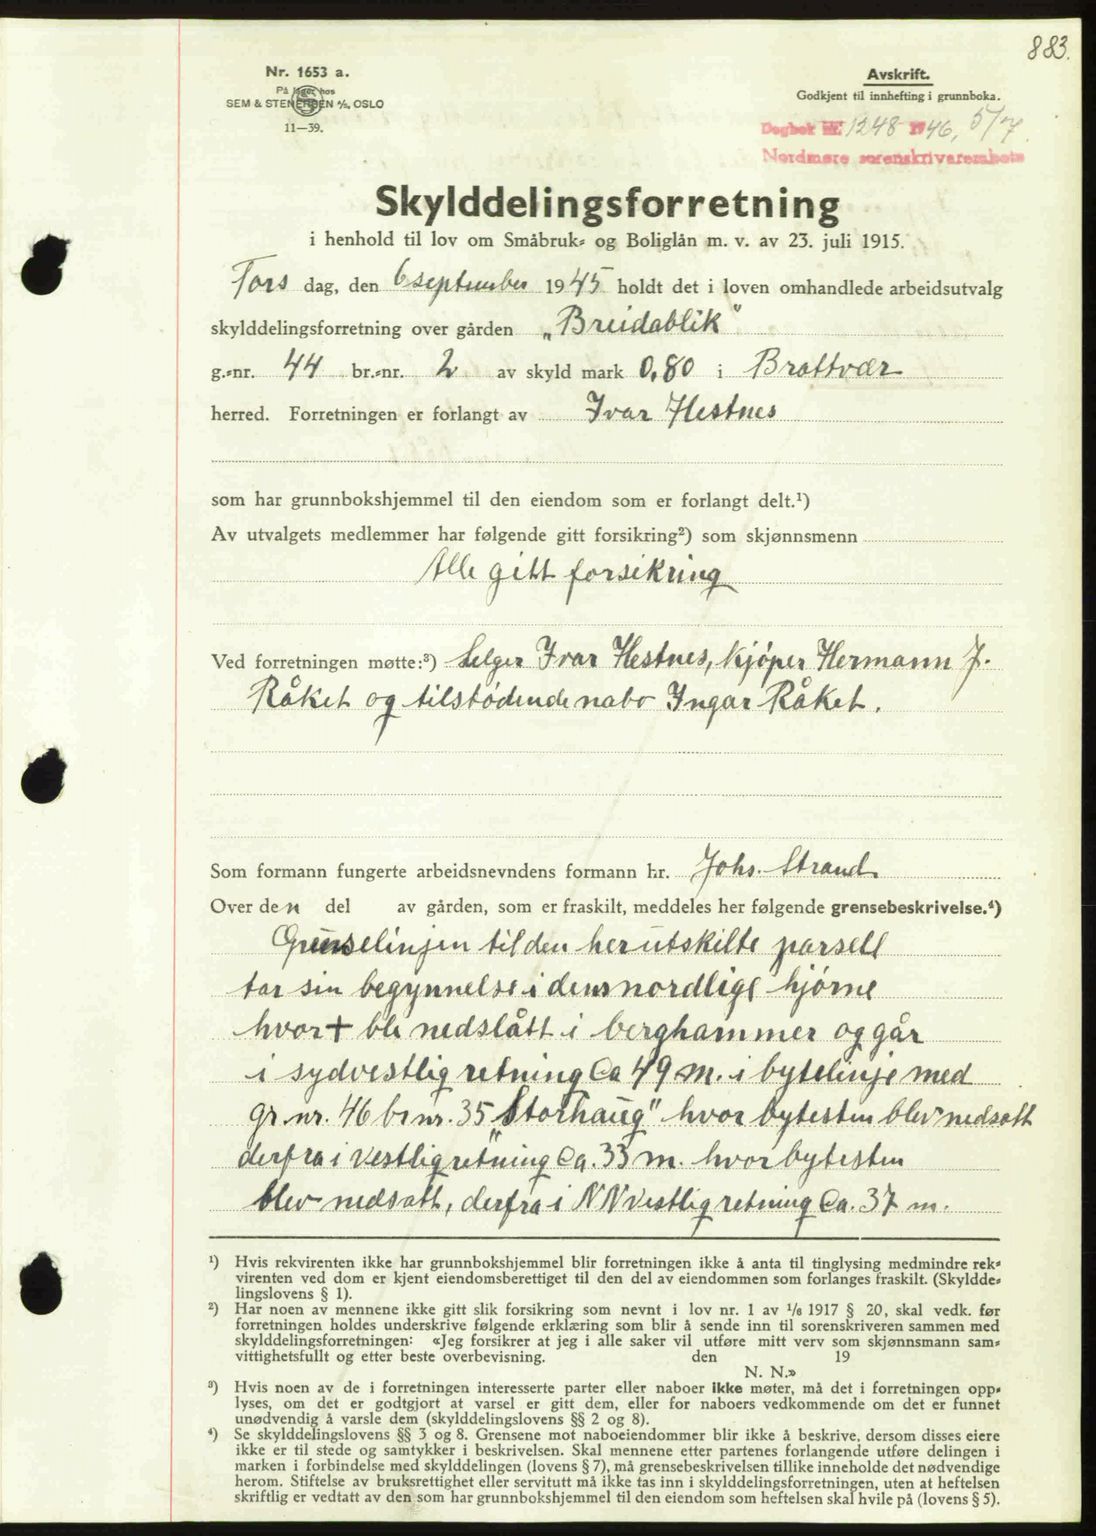 883.
Nr. 1653 a.
På lager hos
SEM & STENERSEN A/S, OSLO
11—39.
Avskrift.
Godkjent til innhefting i grunnboka.
Dagbok nr. 1248 1946, 5/7
Nordmøre sorenskriverembete
Skylddelingsforretning
i henhold til lov om Småbruk- og Boliglån m. v. av 23. juli 1915.
Tors dag, den 6 september 1945 holdt det i loven omhandlede arbeidsutvalg
skylddelingsforretning over gården „Breidablik"
g.-nr. 44 br.-nr. 2 av skyld mark 0,80 i Brattvær
herred. Forretningen er forlangt av Ivar Hestnes
som har grunnbokshjemmel til den eiendom som er forlangt delt.¹)
Av utvalgets medlemmer har følgende gitt forsikring²) som skjønnsmenn
Alle gitt forsikring
Ved forretningen møtte:³) Selger Ivar Hestnes, kjöper Hermann J.
Råket og tilstödende nabo Ingar Råket.
Som formann fungerte arbeidsnevndens formann hr. Johs. Strand
Over den del av gården, som er fraskilt, meddeles her følgende grensebeskrivelse.⁴)
Grenselinjen til den her utskilte parsell
tar sin begynnelse i dens nordlige hjörne
hvor + ble nedslått i berghammer og går
i sydvestlig retning Ca 49 m. i bytelinje med
gr. nr. 46 br nr. 35 „Storhaug" hvor bytesten blev nedsatt
derfra i vestlig retning Ca. 33 m. hvor bytesten
blev nedsatt, derfra i NNvestlig retning Ca. 37 m.
¹) Hvis rekvirenten ikke har grunnbokshjemmel blir forretningen ikke å anta til tinglysing medmindre rek-
virenten ved dom er kjent eiendomsberettiget til den del av eiendommen som forlanges fraskilt. (Skyldde-
lingslovens § 1).
²) Har noen av mennene ikke gitt slik forsikring som nevnt i lov nr. 1 av 1/6 1917 § 20, skal vedk. før
forretningen holdes underskrive følgende erklæring som blir å sende inn til sorenskriveren sammen med
skylddelingsforretningen: «Jeg forsikrer at jeg i alle saker vil utføre mitt verv som skjønnsmann sam-
vittighetsfullt og etter beste overbevisning. den 19
N. N.»
³) Hvis noen av de i forretningen interesserte parter eller naboer ikke møter, må det i forretningen opp-
lyses, om det er godtgjort at varsel er gitt dem, eller for naboers vedkommende om det er funnet
unødvendig å varsle dem (skylddelingslovens §§ 2 og 8).
⁴) Se skylddelingslovens §§ 3 og 8. Grensene mot naboeiendommer blir ikke å beskrive, dersom disses eiere
ikke er til stede og samtykker i beskrivelsen. Skal mennene etter partenes forlangende utføre delingen i
marken i forbindelse med skylddelingen (lovens § 7), må grensebeskrivelsen tillike inneholde det nødvendige
herom. Stiftelse av bruksrettighet eller servitutt må ikke tas inn i skylddelingsforretningen, uten at heftelsen
skriftlig er vedtatt av den som har grunnbokshjemmel til den eiendom som heftelsen skal hvile på (lovens § 5).